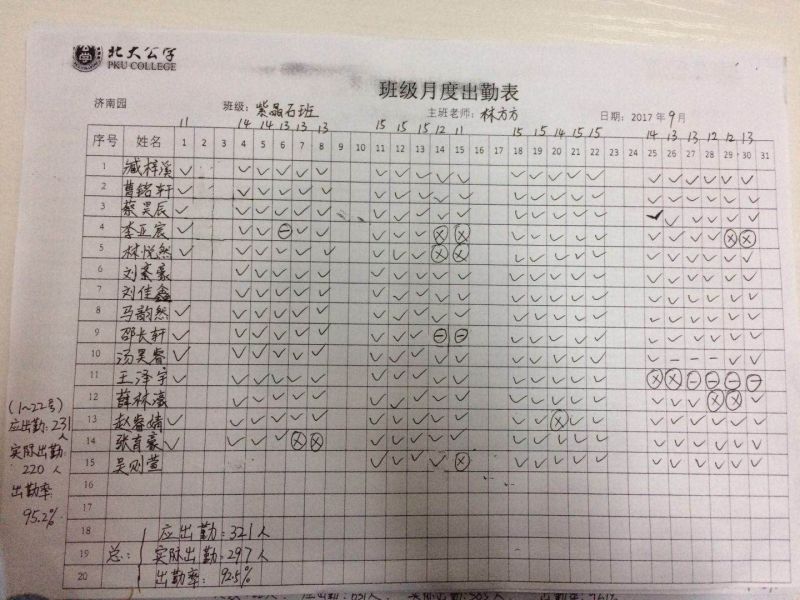 北大公学
PKU COLLEGE
班级月度出勤表
济南园 班级：紫晶石班 主班老师：林方方 日期：2017年9月
11 14 14 13 13 13 15 15 15 12 11 15 15 14 15 15 14 13 13 12 12 13
序号 姓名 1 2 3 4 5 6 7 8 9 10 11 12 13 14 15 16 17 18 19 20 21 22 23 24 25 26 27 28 29 30 31
1 臧梓溪 ✓ ✓ ✓ ✓ ✓ ✓ ✓ ✓ ✓ ✓ ✓ ✓ ✓ ✓ ✓ ✓ ✓ ✓ ✓ ✓ ✓ ✓
2 曹铭轩 ✓ ✓ ✓ ✓ ✓ ✓ ✓ ✓ ✓ ✓ ✓ ✓ ✓ ✓ ✓ ✓ ✓ ✓ ✓ ✓ ✓ ✓
3 蔡昊辰 ✓ ✓ ✓ ✓ ✓ ✓ ✓ ✓ ✓ ✓ ✓ ✓ ✓ ✓ ✓ ✓ ✓ ✓ ✓ ✓ ✓ ✓
4 李亚宸 ✓ ✓ ✓ ⊖ ✓ ✓ ✓ ✓ ✓ ⊗ ⊗ ✓ ✓ ✓ ✓ ✓ ✓ ✓ ✓ ✓ ⊗ ⊗
5 林悦然 ✓ ✓ ✓ ✓ ✓ ✓ ✓ ✓ ✓ ⊗ ⊗ ✓ ✓ ✓ ✓ ✓ ✓ ✓ ✓ ✓ ✓ ✓
6 刘秦豪 ✓ ✓ ✓ ✓ ✓ ✓ ✓ ✓ ✓ ✓ ✓ ✓ ✓ ✓ ✓ ✓ ✓ ✓ ✓ ✓ ✓
7 刘佳鑫 ✓ ✓ ✓ ✓ ✓ ✓ ✓ ✓ ✓ ✓ ✓ ✓ ✓ ✓ ✓ ✓ ✓ ✓ ✓ ✓ ✓
8 马韵然 ✓ ✓ ✓ ✓ ✓ ✓ ✓ ✓ ✓ ✓ ✓ ✓ ✓ ✓ ✓ ✓ ✓ ✓ ✓ ✓ ✓ ✓
9 邵长轩 ✓ ✓ ✓ ✓ ✓ ✓ ✓ ✓ ✓ ⊖ ⊖ ✓ ✓ ✓ ✓ ✓ ✓ ✓ ✓ ✓ ✓ ✓
10 汤昊睿 ✓ ✓ ✓ ✓ ✓ ✓ ✓ ✓ ✓ ✓ ✓ ✓ ✓ ✓ ✓ ✓ ✓ – – – ✓ ✓
11 王泽宇 ✓ ✓ ✓ ✓ ✓ ✓ ✓ ✓ ✓ ✓ ✓ ✓ ✓ ✓ ✓ ✓ ⊗ ⊗ ⊖ ⊖ ⊖ ⊖
12 薛林 ✓ ✓ ✓ ✓ ✓ ✓ ✓ ✓ ✓ ✓ ✓ ✓ ✓ ✓ ✓ ✓ ✓ ✓ ⊗ ⊗ ✓
13 赵睿婧 ✓ ✓ ✓ ✓ ✓ ✓ ✓ ✓ ✓ ✓ ✓ ✓ ✓ ⊗ ✓ ✓ ✓ ✓ ✓ ✓ ✓ ✓
14 张育豪 ✓ ✓ ✓ ✓ ⊗ ⊗ ✓ ✓ ✓ ✓ ✓ ✓ ✓ ✓ ✓ ✓ ✓ ✓ ✓ ✓ ✓ ✓
15 吴则萱 ✓ ✓ ✓ ✓ ⊗ ✓ ✓ ✓ ✓ ✓ ✓ ✓ ✓ ✓ ✓ ✓
16
17
18 应出勤：321人
19 总： 实际出勤：297人
20 出勤率：92.5%
(1~22号)
应出勤：231人
实际出勤：
220人
出勤率：
95.2%